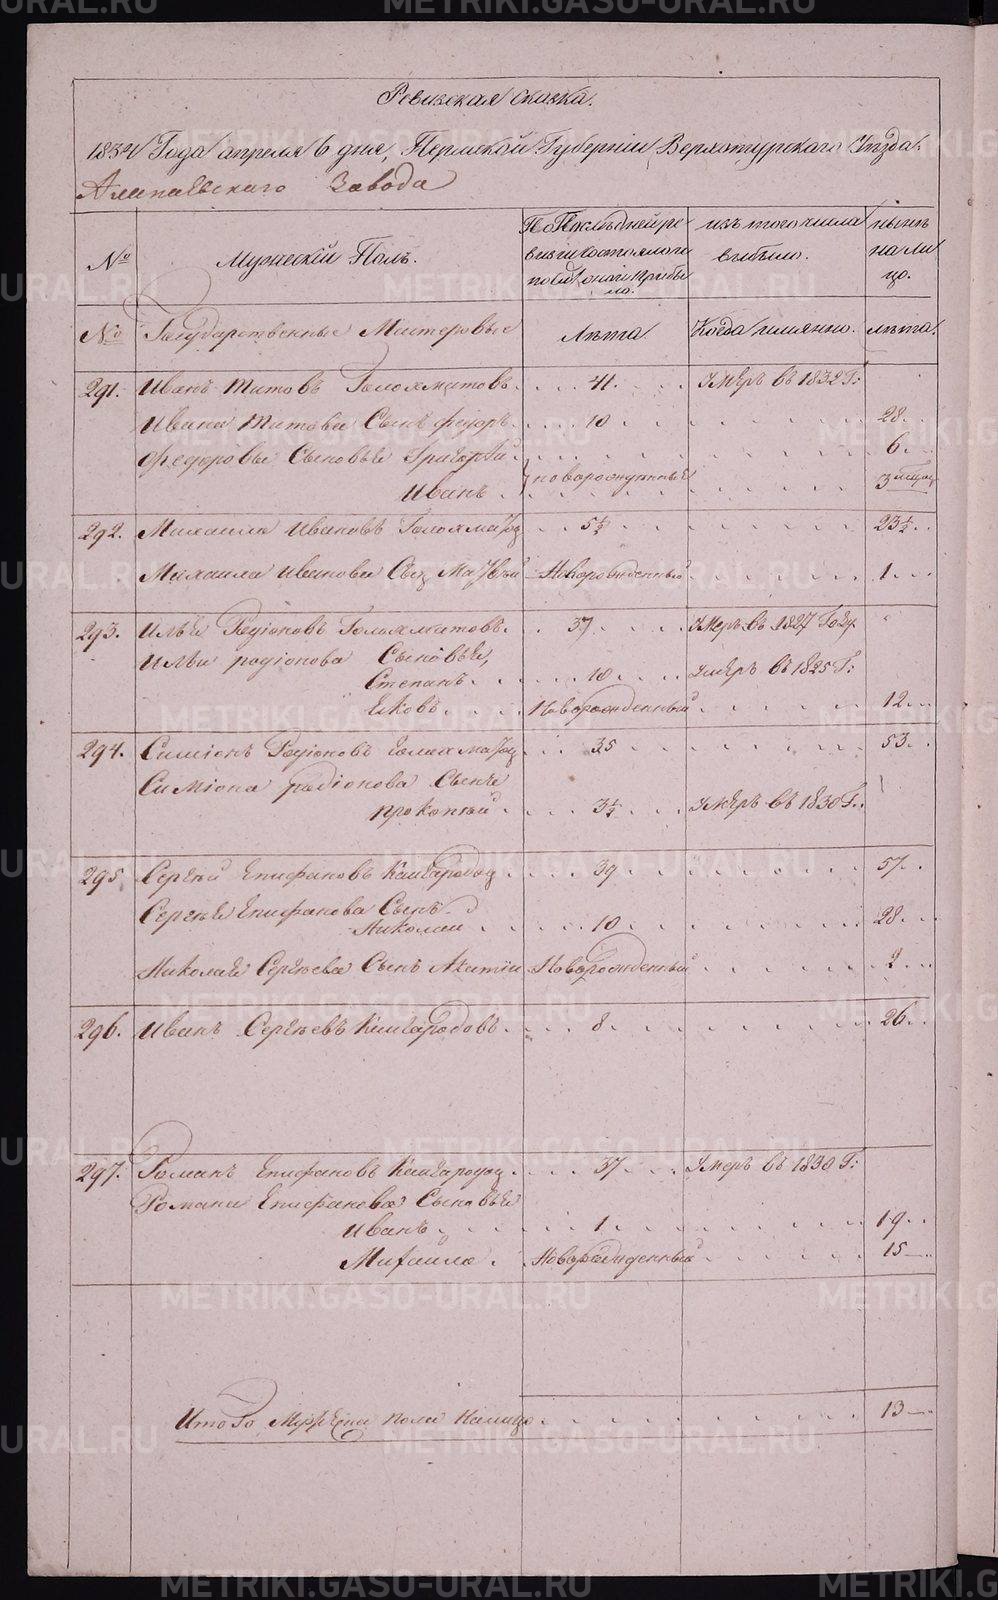 Ревизская сказка.
1834 Года апреля 6 дня, Пермской Губернiи Верхотурскаго Уѣзда.
Алапаевскаго Завода
№
Мужескiй Полъ.
По Последней ре-
визiи состояло и
после оной прибы-
ло.
изъ того числа
выбыло.
нынѣ
на ли
цо.
№ Государственные Мастеровые
Лѣта
Когда имянно.
лѣта.
291. Иванъ Титовъ Голохматовъ 41. Умеръ въ 1832 Г:
Ивана Титова Сынъ федоръ 10 28
Федоровы Сыновья Григорiй 6
Иванъ } новорожденные 3 месяц
292. Михаила Ивановъ Голохматов 5½ 23½
Михаила Иванова Сын Матвей Новорожденный 1
293. Илья Родiоновъ Голохматовъ 37 Умеръ въ 1827 Году
Ильи родiонова Сыновья,
Степанъ 10 Умеръ въ 1825 Г:
Яковъ Новорожденный 12
294. Симiонъ Родiоновъ Голохматов 35 53
Симiона родiонова Сынъ
прокопей 3½ Умеръ въ 1830 Г:
295 Сергей Епифановъ Кайгородов 39 57
Сергея Епифанова Сынъ
Николай 10 28
Николая Сергеева Сынъ Акатiй Новорожденный 2
296. Иванъ Сергеевъ Кайгородовъ 8 26
297. Романъ Епифановъ Кайгородов 37 Умеръ въ 1830 Г:
Романа Епифанова Сыновья
Иванъ 1 19
Михаила Новорожденный 15
Итого Мужеска пола налицо 13
METRIKI.GASO-URAL.RU